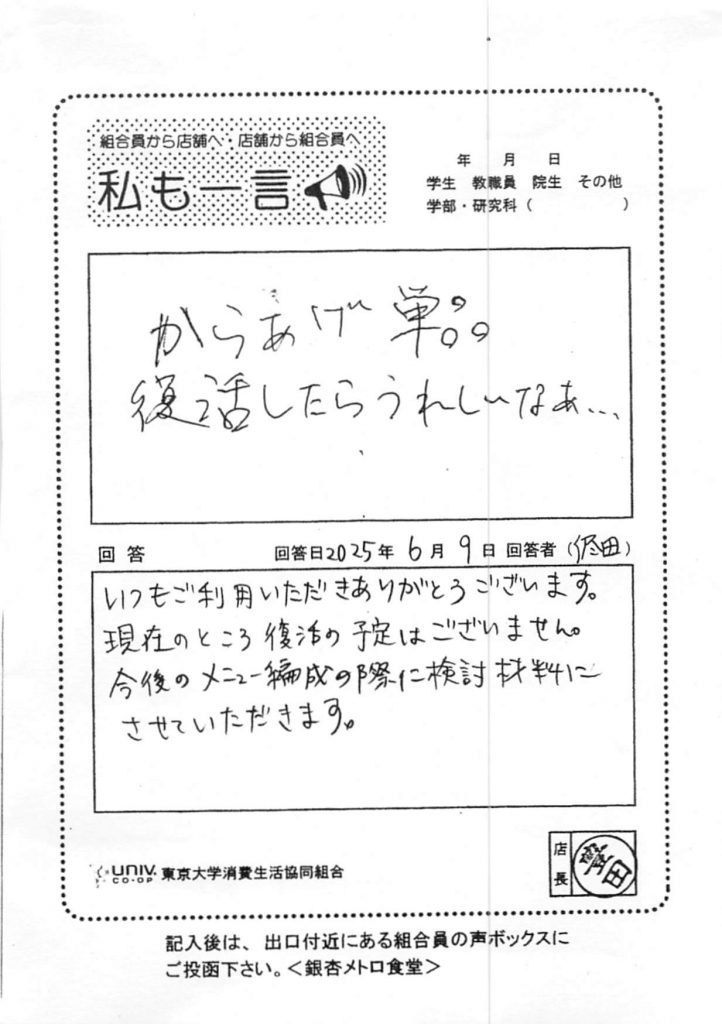 組合員から店舗へ・店舗から組合員へ
私も一言
年 月 日
学生 教職員 院生 その他
学部・研究科( )
からあげ 単品。
復活したらうれしいなぁ...
回答 回答日2025年6月9日 回答者(窪田)
いつもご利用いただきありがとうございます。
現在のところ復活の予定はございません。
今後のメニュー編成の際に検討材料に
させていただきます。
UNIV. CO-OP 東京大学消費生活協同組合
店長
記入後は、出口付近にある組合員の声ボックスに
ご投函下さい。<銀杏メトロ食堂>